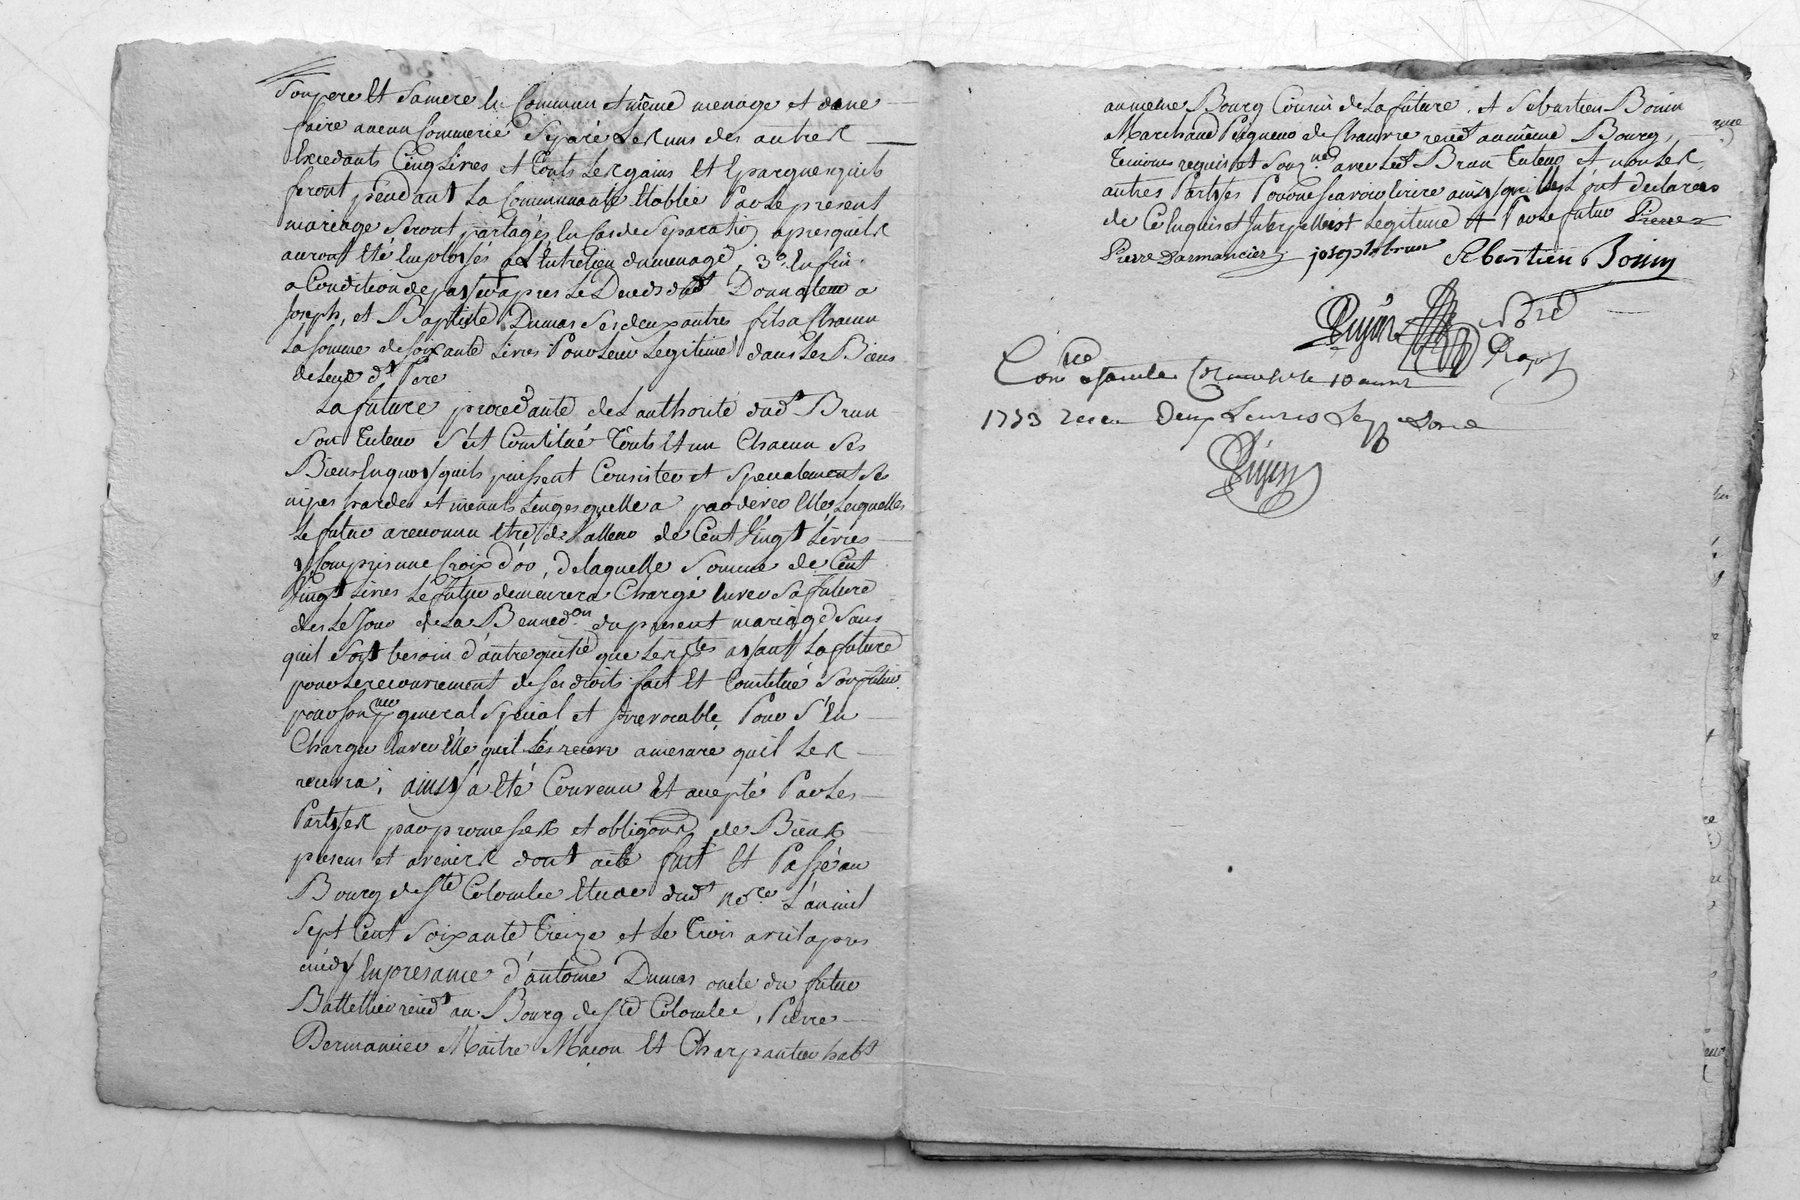 Son pere Et Sa mere En Commun et même menage et de ne
faire aucun Commerce Separé Les uns des autres
Excedants Cinq Livres et touts Les gains Et Epargnes quils
feront pendant La Communauté Etablie Par Le present
mariage Seront partagés En Cas de Separation apres quils
auront Eté Employés a L'Entretien du menage, 3° Enfin
a Condition de payer apres Le Deceds dud.t Donnateur a
Joseph, et Baptiste Dumas Ses deux autres fils a Chacun
La Somme de Soixante Livres Pour Leur Legitime dans Les Biens
de Leurd.t Pere
La future procedante de L'authorité dud.t Brun
Son Tuteur S'est Constitué Touts Et un Chacun Ses
Biens En quoy quils puissent Consister et Specialement Ses
nipes hardes et menuts Linges quelle a par devers Elle, Lesquelles
Le futur a reconnu Etre de valleur de Cent Vingt Livres
y Compris une Croix d'or, de laquelle Somme de Cent
Vingt Livres Le futur demeurera Chargé Envers Sa future
des Le Jour de La Bened.on du present mariage Sans
quil Soit besoin d'autre quitté que Les p.tes ayant La future
pour Le recouvrement de Ses droits fait Et Constitué Son futur
pour Son general Special et Irrevocable Pour S'En
Charger Envers Elle quil Les recevra a mesure quil Les
recevra; ainsy a Eté Convenu Et accepté Par Les
Parties par promesses et obligons de Biens
presens et avenirs dont acte fait Et Passé au
Bourg de Ste Colombe Etude dud.t No.re L'an mil
Sept Cent Soixante Treize et Le Trois avril apres
midy En presance d'antoine Dumas oncle du futur
Battellier resid.t au Bourg de Ste Colombe, Pierre
Dermancier Maître Maçon Et Charpantier hab.t
au meme Bourg Cousin de La future et Sebastien Bonin
Marchand Peigneur de Chanvre resid.t au même Bourg,
Temoins requis Et Soug.nés avec Led.t Brun Tuteur et non Les
autres Parties Pour ne Scavoir Ecrire ainsy quilles L'ont declarés
de Ce Enquis et Interpellés Legitime Par Le futur Pierre
Pierre Darmancier joseph brun Sebastien Bonin
Pujin No.re
Con.lée a Ste Colombe le 10 avril
1773 receu Deux Livres
Pujin